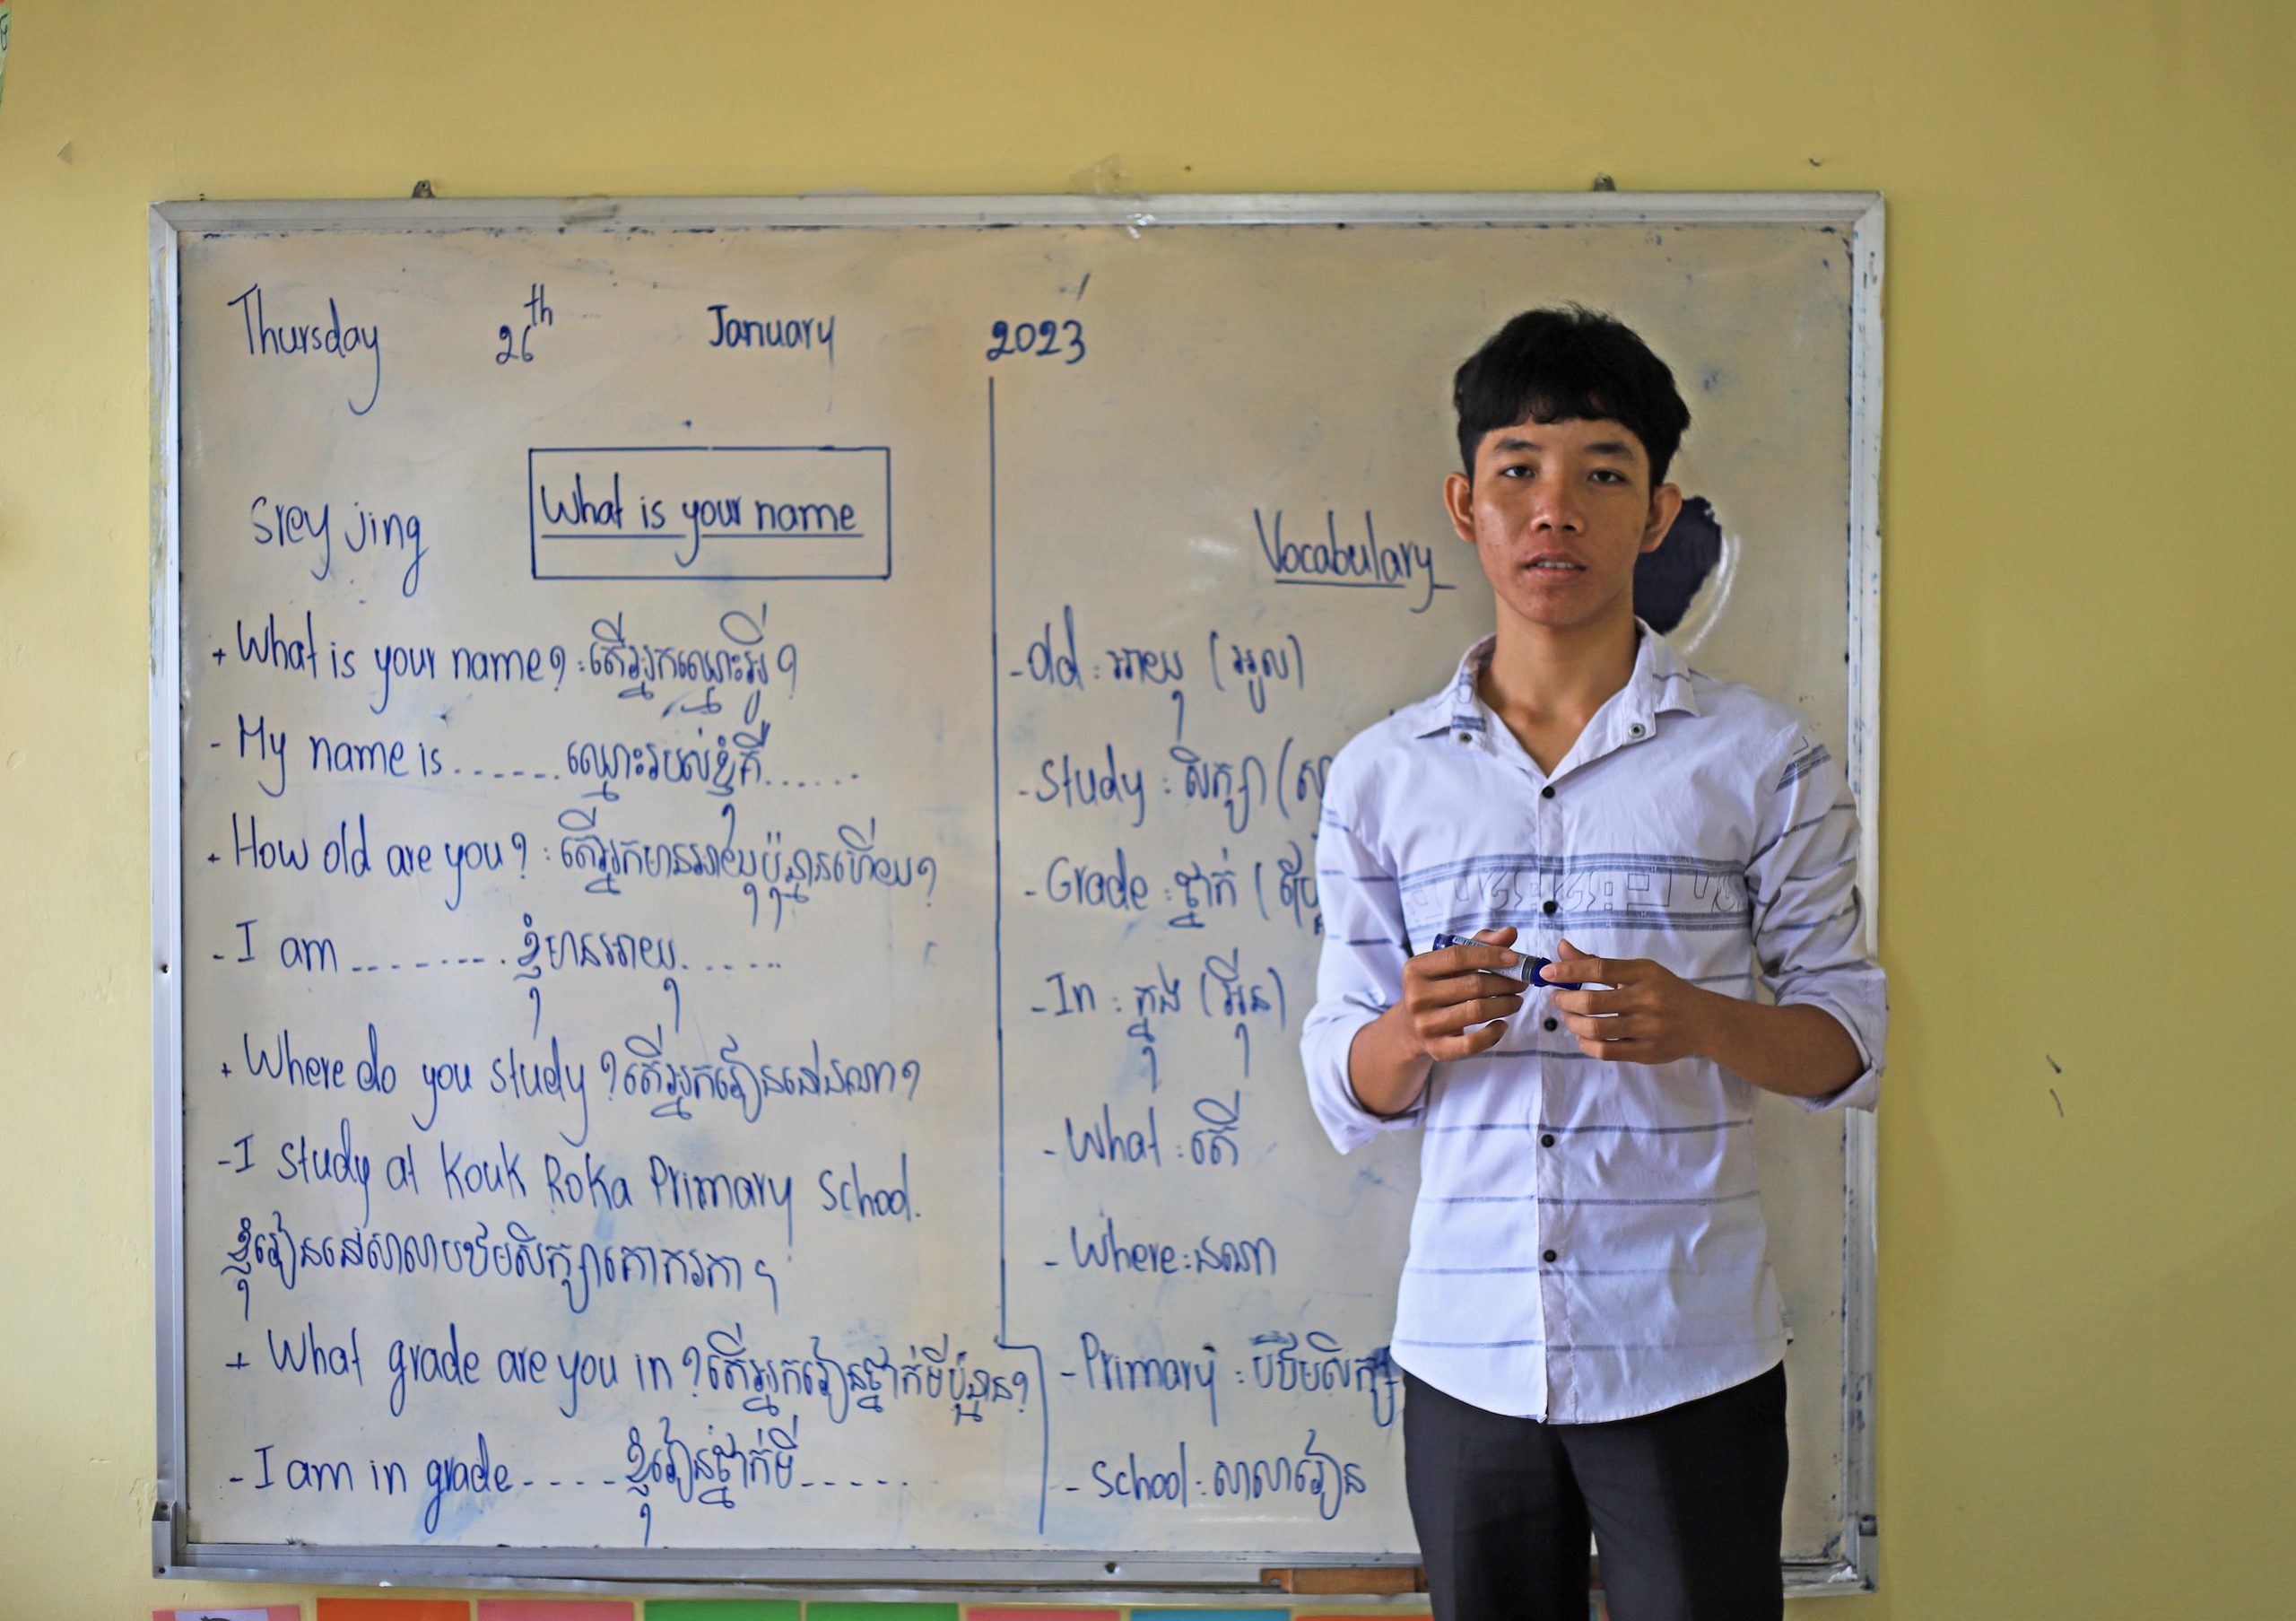 Thursday 26th January 2023
What is your name
Srey jing
+ What is your name? : តើអ្នកឈ្មោះអ្វី?
- My name is ....... ឈ្មោះរបស់ខ្ញុំគឺ.......
+ How old are you? : តើអ្នកមានអាយុប៉ុន្មានហើយ?
- I am ......... ខ្ញុំមានអាយុ.......
+ Where do you study? តើអ្នករៀននៅឯណា?
- I study at Kouk Roka Primary School.
ខ្ញុំរៀននៅសាលាបឋមសិក្សាគោករកា។
+ What grade are you in? តើអ្នករៀនថ្នាក់ទីប៉ុន្មាន?
- I am in grade ..... ខ្ញុំរៀនថ្នាក់ទី......
Vocabulary
- Old : អាយុ (អូល)
- Study : សិក្សា
- Grade : ថ្នាក់
- In : ក្នុង (អ៊ីន)
- What : តើ
- Where : ឯណា
- Primary : បឋមសិក្សា
- School : សាលារៀន